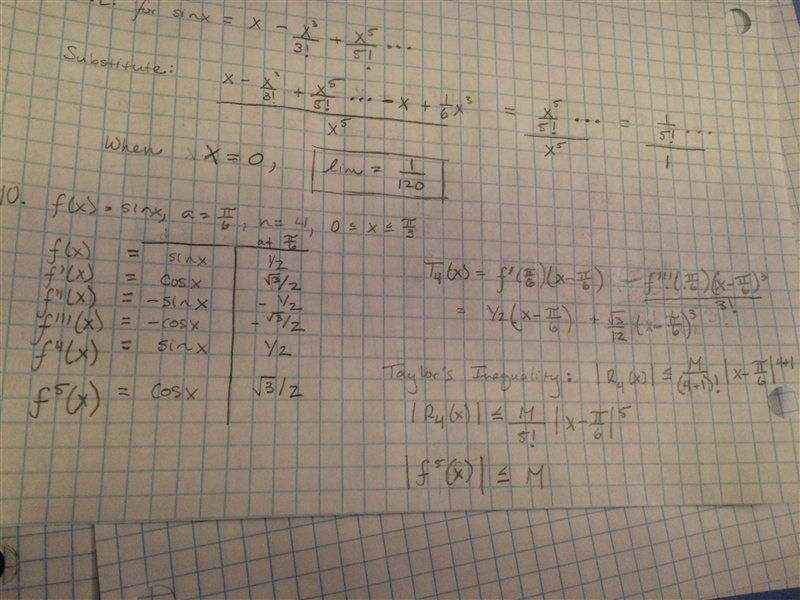 for sinx = x - x³/3! + x⁵/5! ...
Substitute:
(x - x³/3! + x⁵/5! ... - x + 1/6 x³)/x⁵ = (x⁵/5! ...)/x⁵ = (1/5! ...)/1
When x = 0, lim = 1/120
10. f(x) = sinx, a = π/6, n = 4, 0 ≤ x ≤ π/3
at π/6
f(x) = sinx 1/2
f'(x) = cosx √3/2
f''(x) = -sinx - 1/2
f'''(x) = -cosx -√3/2
f⁴(x) = sinx 1/2
f⁵(x) = cosx √3/2
T₄(x) = f'(π/6)(x-π/6) - f'''(π/6)(x-π/6)³/3!
= 1/2(x-π/6) + √3/12 (x-π/6)³
Taylor's Inequality: |R₄(x)| ≤ M/(4+1)! |x-π/6|⁴⁺¹
|R₄(x)| ≤ M/5! |x-π/6|⁵
|f⁵(x)| ≤ M